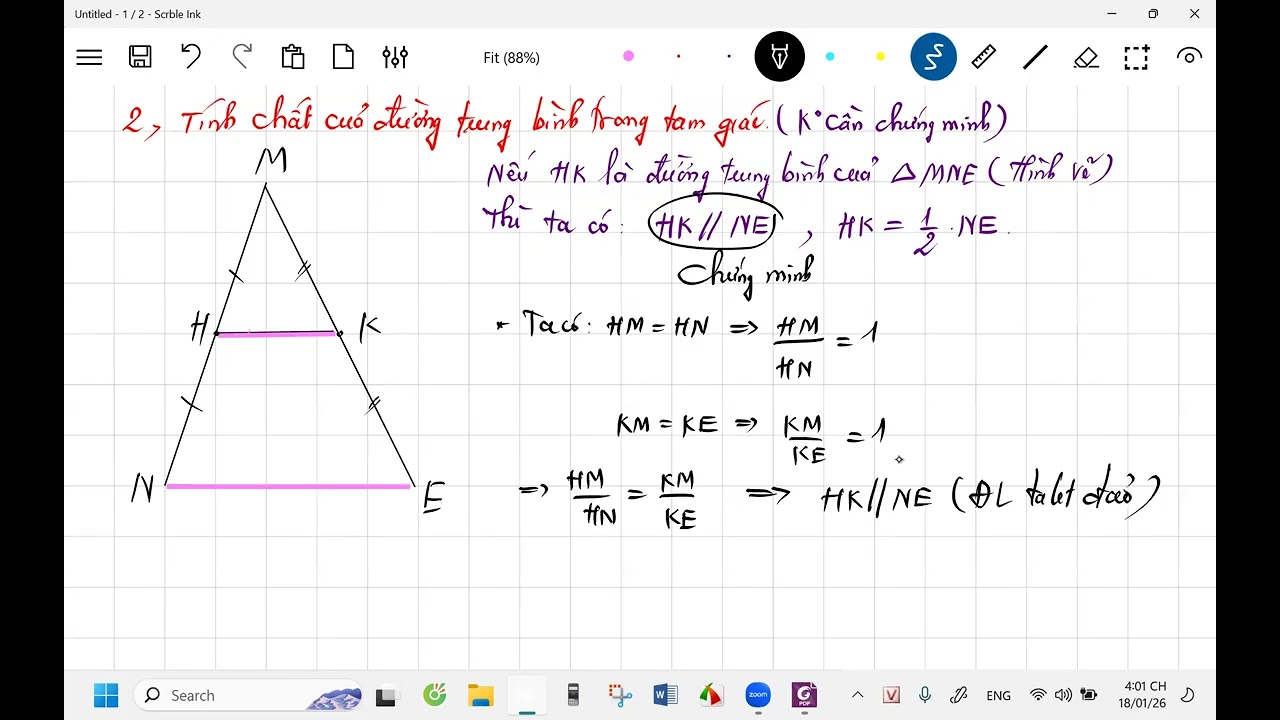 Untitled - 1 / 2 - Scrble Ink
Fit (88%)
2, Tính chất của đường trung bình trong tam giác. (K° cần chứng minh)
Nếu HK là đường trung bình của △MNE (Hình vẽ)
Thì ta có: HK // NE, HK = 1/2 . NE.
Chứng minh
M
H
K
N
E
* Ta có: HM = HN => HM/HN = 1
KM = KE => KM/KE = 1
=> HM/HN = KM/KE => HK // NE (ĐL talet đảo)
Search
zoom
PDF
ENG
4:01 CH
18/01/26